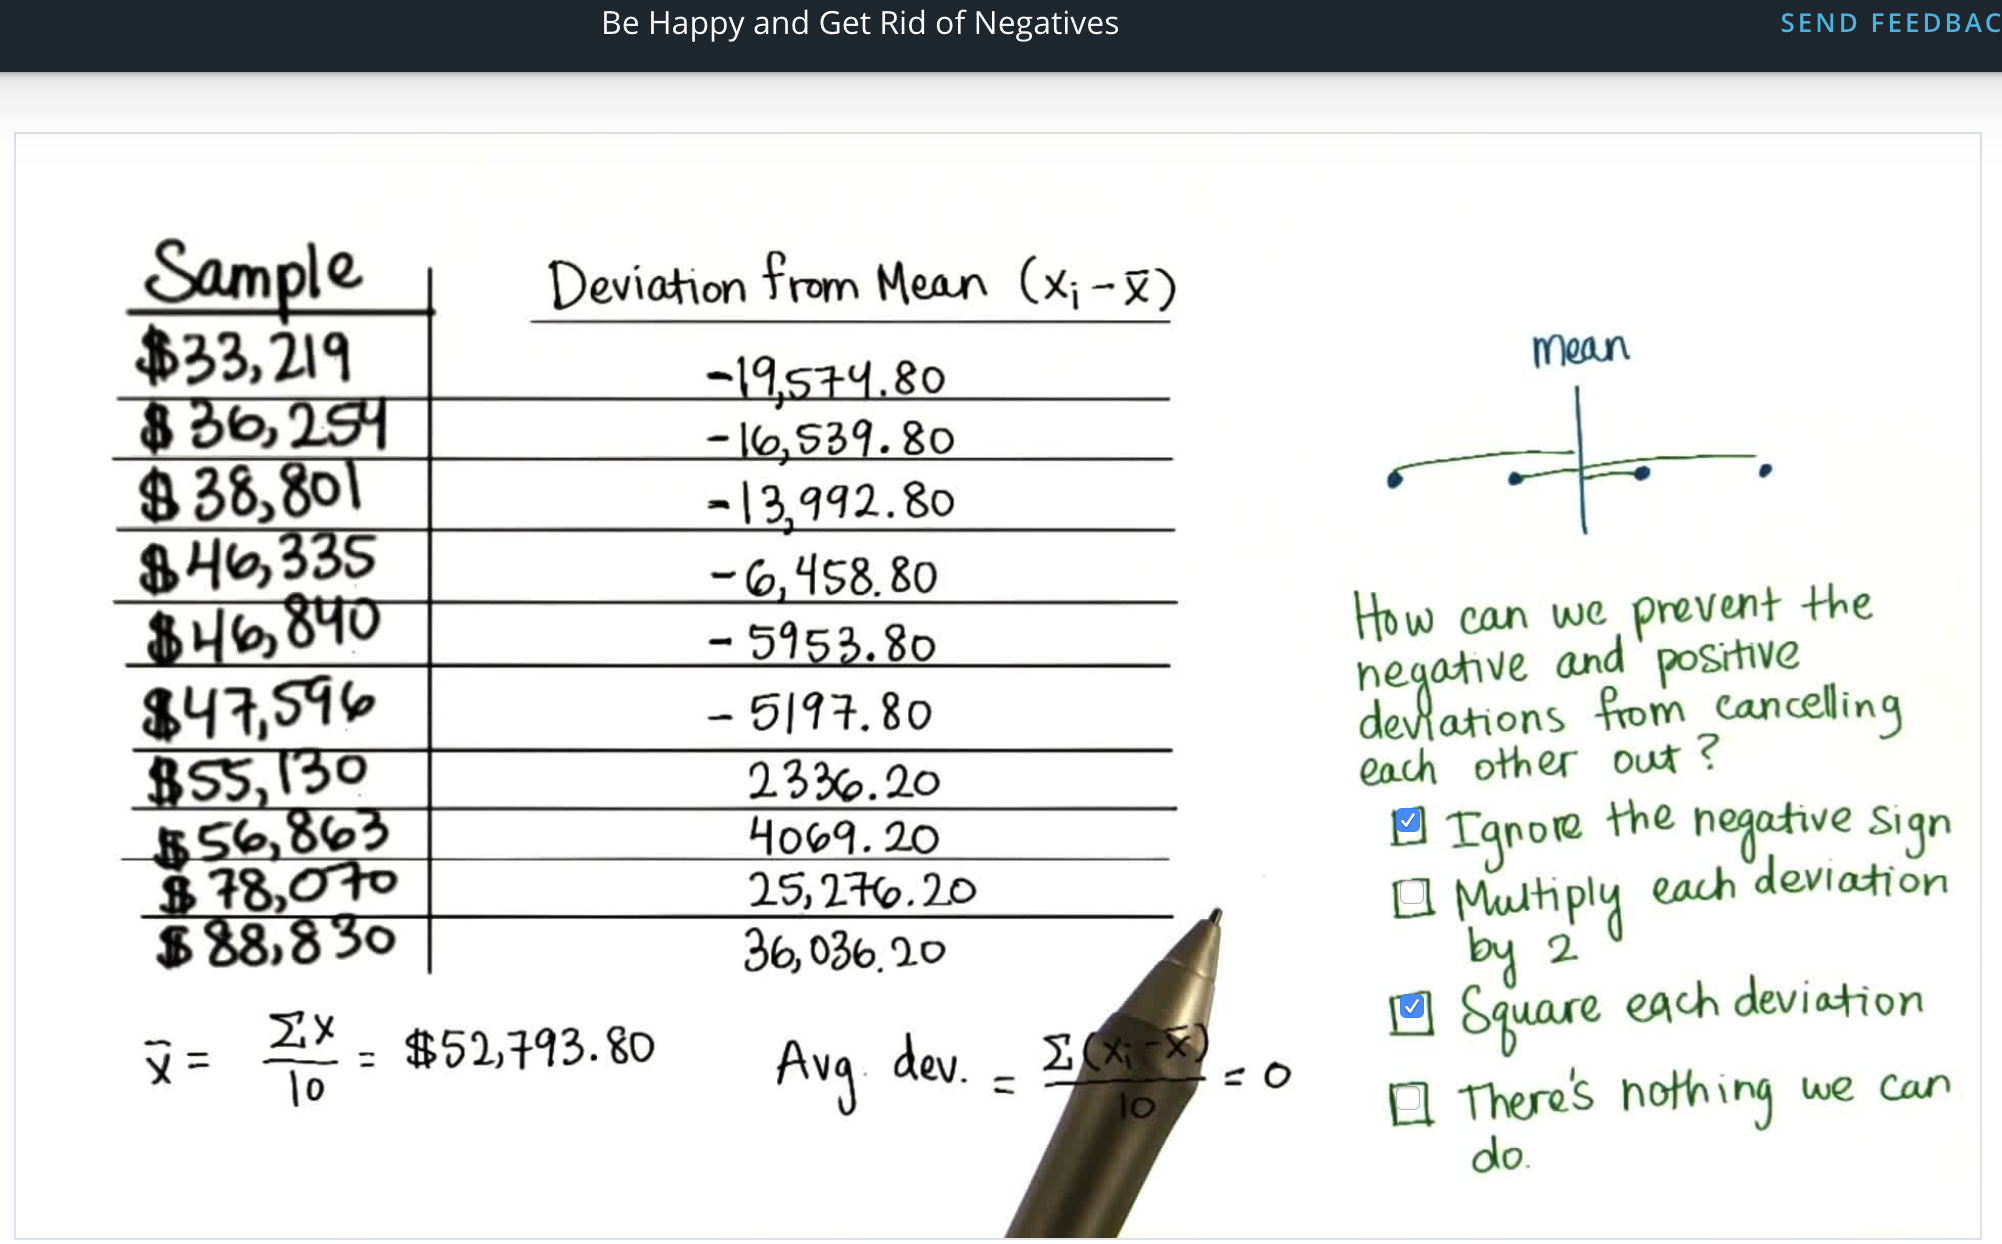 Be Happy and Get Rid of Negatives
SEND FEEDBAC
Sample
Deviation from Mean (xᵢ - x̄)
$33,219 -19,574.80
$36,254 -16,539.80
$38,801 -13,992.80
$46,335 -6,458.80
$46,840 -5953.80
$47,596 -5197.80
$55,130 2336.20
$56,863 4069.20
$78,070 25,276.20
$88,830 36,036.20
x̄ = Σx / 10 = $52,793.80
Avg. dev. = Σ(xᵢ - x̄) / 10 = 0
mean
How can we prevent the
negative and positive
deviations from cancelling
each other out?
Ignore the negative sign
Multiply each deviation
by 2
Square each deviation
There's nothing we can
do.